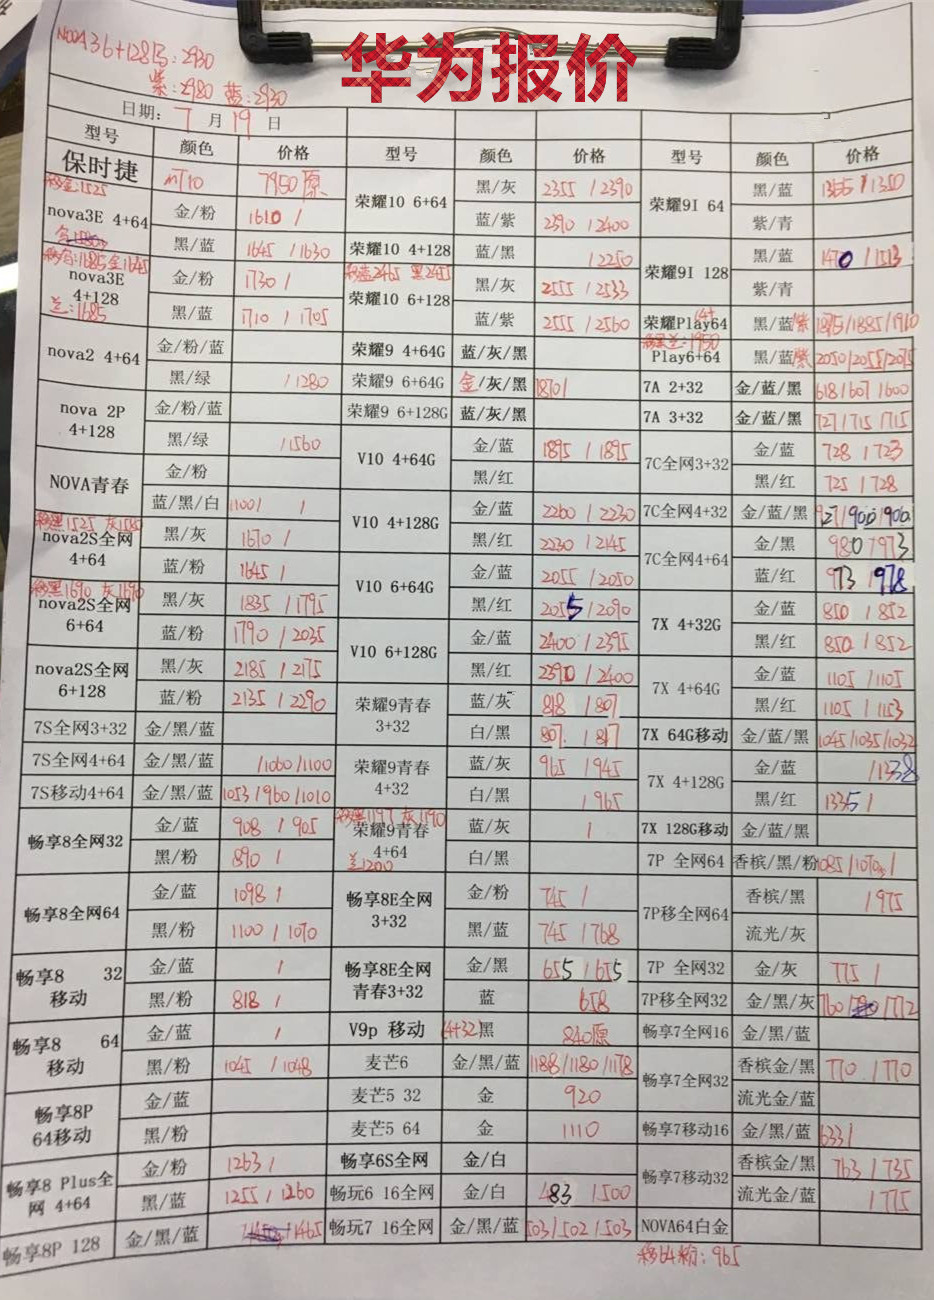 华为报价
NOVA3 6+128黑:2930
紫:2980 蓝:2930
日期: 7 月 19 日
型号 颜色 价格 型号 颜色 价格 型号 颜色 价格
保时捷 mt10 7950原 荣耀10 6+64 黑/灰 2355 / 2390 荣耀9I 64 黑/蓝 1365 / 1350
移金:1525
nova3E 4+64 金/粉 1610 / 蓝/紫 2390 / 2400 紫/青
黑/蓝 1645 / 1630 荣耀10 4+128 蓝/黑 / 2250 荣耀9I 128 黑/蓝 1470 / 1513
移蓝2465 黑2455
nova3E 4+128 金/粉 1730 / 荣耀10 6+128 黑/灰 2555 / 2533 紫/青
兰:1685 黑/蓝 1710 / 1705 蓝/紫 2555 / 2560 荣耀Play64 4+ 黑/蓝/紫 1875/1885/1910
nova2 4+64 金/粉/蓝 荣耀9 4+64G 蓝/灰/黑 Play6+64 黑/蓝/紫 2050/2055/2075
黑/绿 / 1280 荣耀9 6+64G 金/灰/黑 1870/ 7A 2+32 金/蓝/黑 618/607/600
nova 2P 4+128 金/粉/蓝 荣耀9 6+128G 蓝/灰/黑 7A 3+32 金/蓝/黑 727/715/715
黑/绿 / 1560 V10 4+64G 金/蓝 1895 / 1895 7C全网3+32 金/蓝 728 / 723
NOVA青春 金/粉 黑/红 黑/红 725 / 728
蓝/黑/白 1100/ / V10 4+128G 金/蓝 2260 / 2230 7C全网4+32 金/蓝/黑 927/900/900
移黑1525 灰1545
nova2S全网 4+64 黑/灰 1670 / 黑/红 2230 / 2145 7C全网4+64 金/黑 980 / 973
蓝/粉 1645 / V10 6+64G 金/蓝 2055 / 2050 蓝/红 973 / 978
移黑1690 灰1690
nova2S全网 6+64 黑/灰 1835 / 1795 黑/红 2055 / 2090 7X 4+32G 金/蓝 850 / 852
蓝/粉 1790 / 2035 V10 6+128G 金/蓝 2400 / 2395 黑/红 850 / 852
nova2S全网 6+128 黑/灰 2185 / 2175 黑/红 2390 / 2400 7X 4+64G 金/蓝 1105 / 1105
蓝/粉 2135 / 2290 荣耀9青春 3+32 蓝/灰 818 / 807 黑/红 1105 / 1153
7S全网3+32 金/黑/蓝 白/黑 807 / 817 7X 64G移动 金/蓝/黑 1045/1035/1032
7S全网4+64 金/黑/蓝 /1060/1100 荣耀9青春 4+32 蓝/灰 965 / 945 7X 4+128G 金/蓝 /1338
7S移动4+64 金/黑/蓝 1053/960/1010 白/黑 / 965 黑/红 1335 /
移黑1197 灰1190
畅享8全网32 金/蓝 908 / 905 荣耀9青春 4+64 蓝/灰 / 7X 128G移动 金/蓝/黑
黑/粉 890 / 兰1200 白/黑 7P 全网64 香槟/黑/粉 1085/1070/
畅享8全网64 金/蓝 1098 / 畅享8E全网 3+32 金/粉 745 / 7P移全网64 香槟/黑 / 975
黑/粉 1100 / 1070 黑/蓝 745 / 768 流光/灰
畅享8 32 移动 金/蓝 / 畅享8E全网 青春3+32 金/黑 655 / 655 7P 全网32 金/灰 775 /
黑/粉 818 / 蓝 658 7P移全网32 金/黑/灰 760/ /772
畅享8 64 移动 金/蓝 / V9p 移动 (4+32)黑 840原 畅享7全网16 金/黑/蓝
黑/粉 1045 / 1048 麦芒6 金/黑/蓝 1188/1180/1178 畅享7全网32 香槟金/黑 770 / 770
畅享8P 64移动 金/蓝 麦芒5 32 金 920 流光金/蓝
黑/粉 麦芒5 64 金 1110 畅享7移动16 金/黑/蓝 633/
畅享8 Plus全网 4+64 金/粉 1263 / 畅享6S全网 金/白 畅享7移动32 香槟金/黑 763 / 735
黑/蓝 1255 / 1260 畅玩6 16全网 金/白 483 / 500 流光金/蓝 / 775
畅享8P 128 金/黑/蓝 1465 畅玩7 16全网 金/黑/蓝 503/502/503 NOVA64白金
移64粉:965